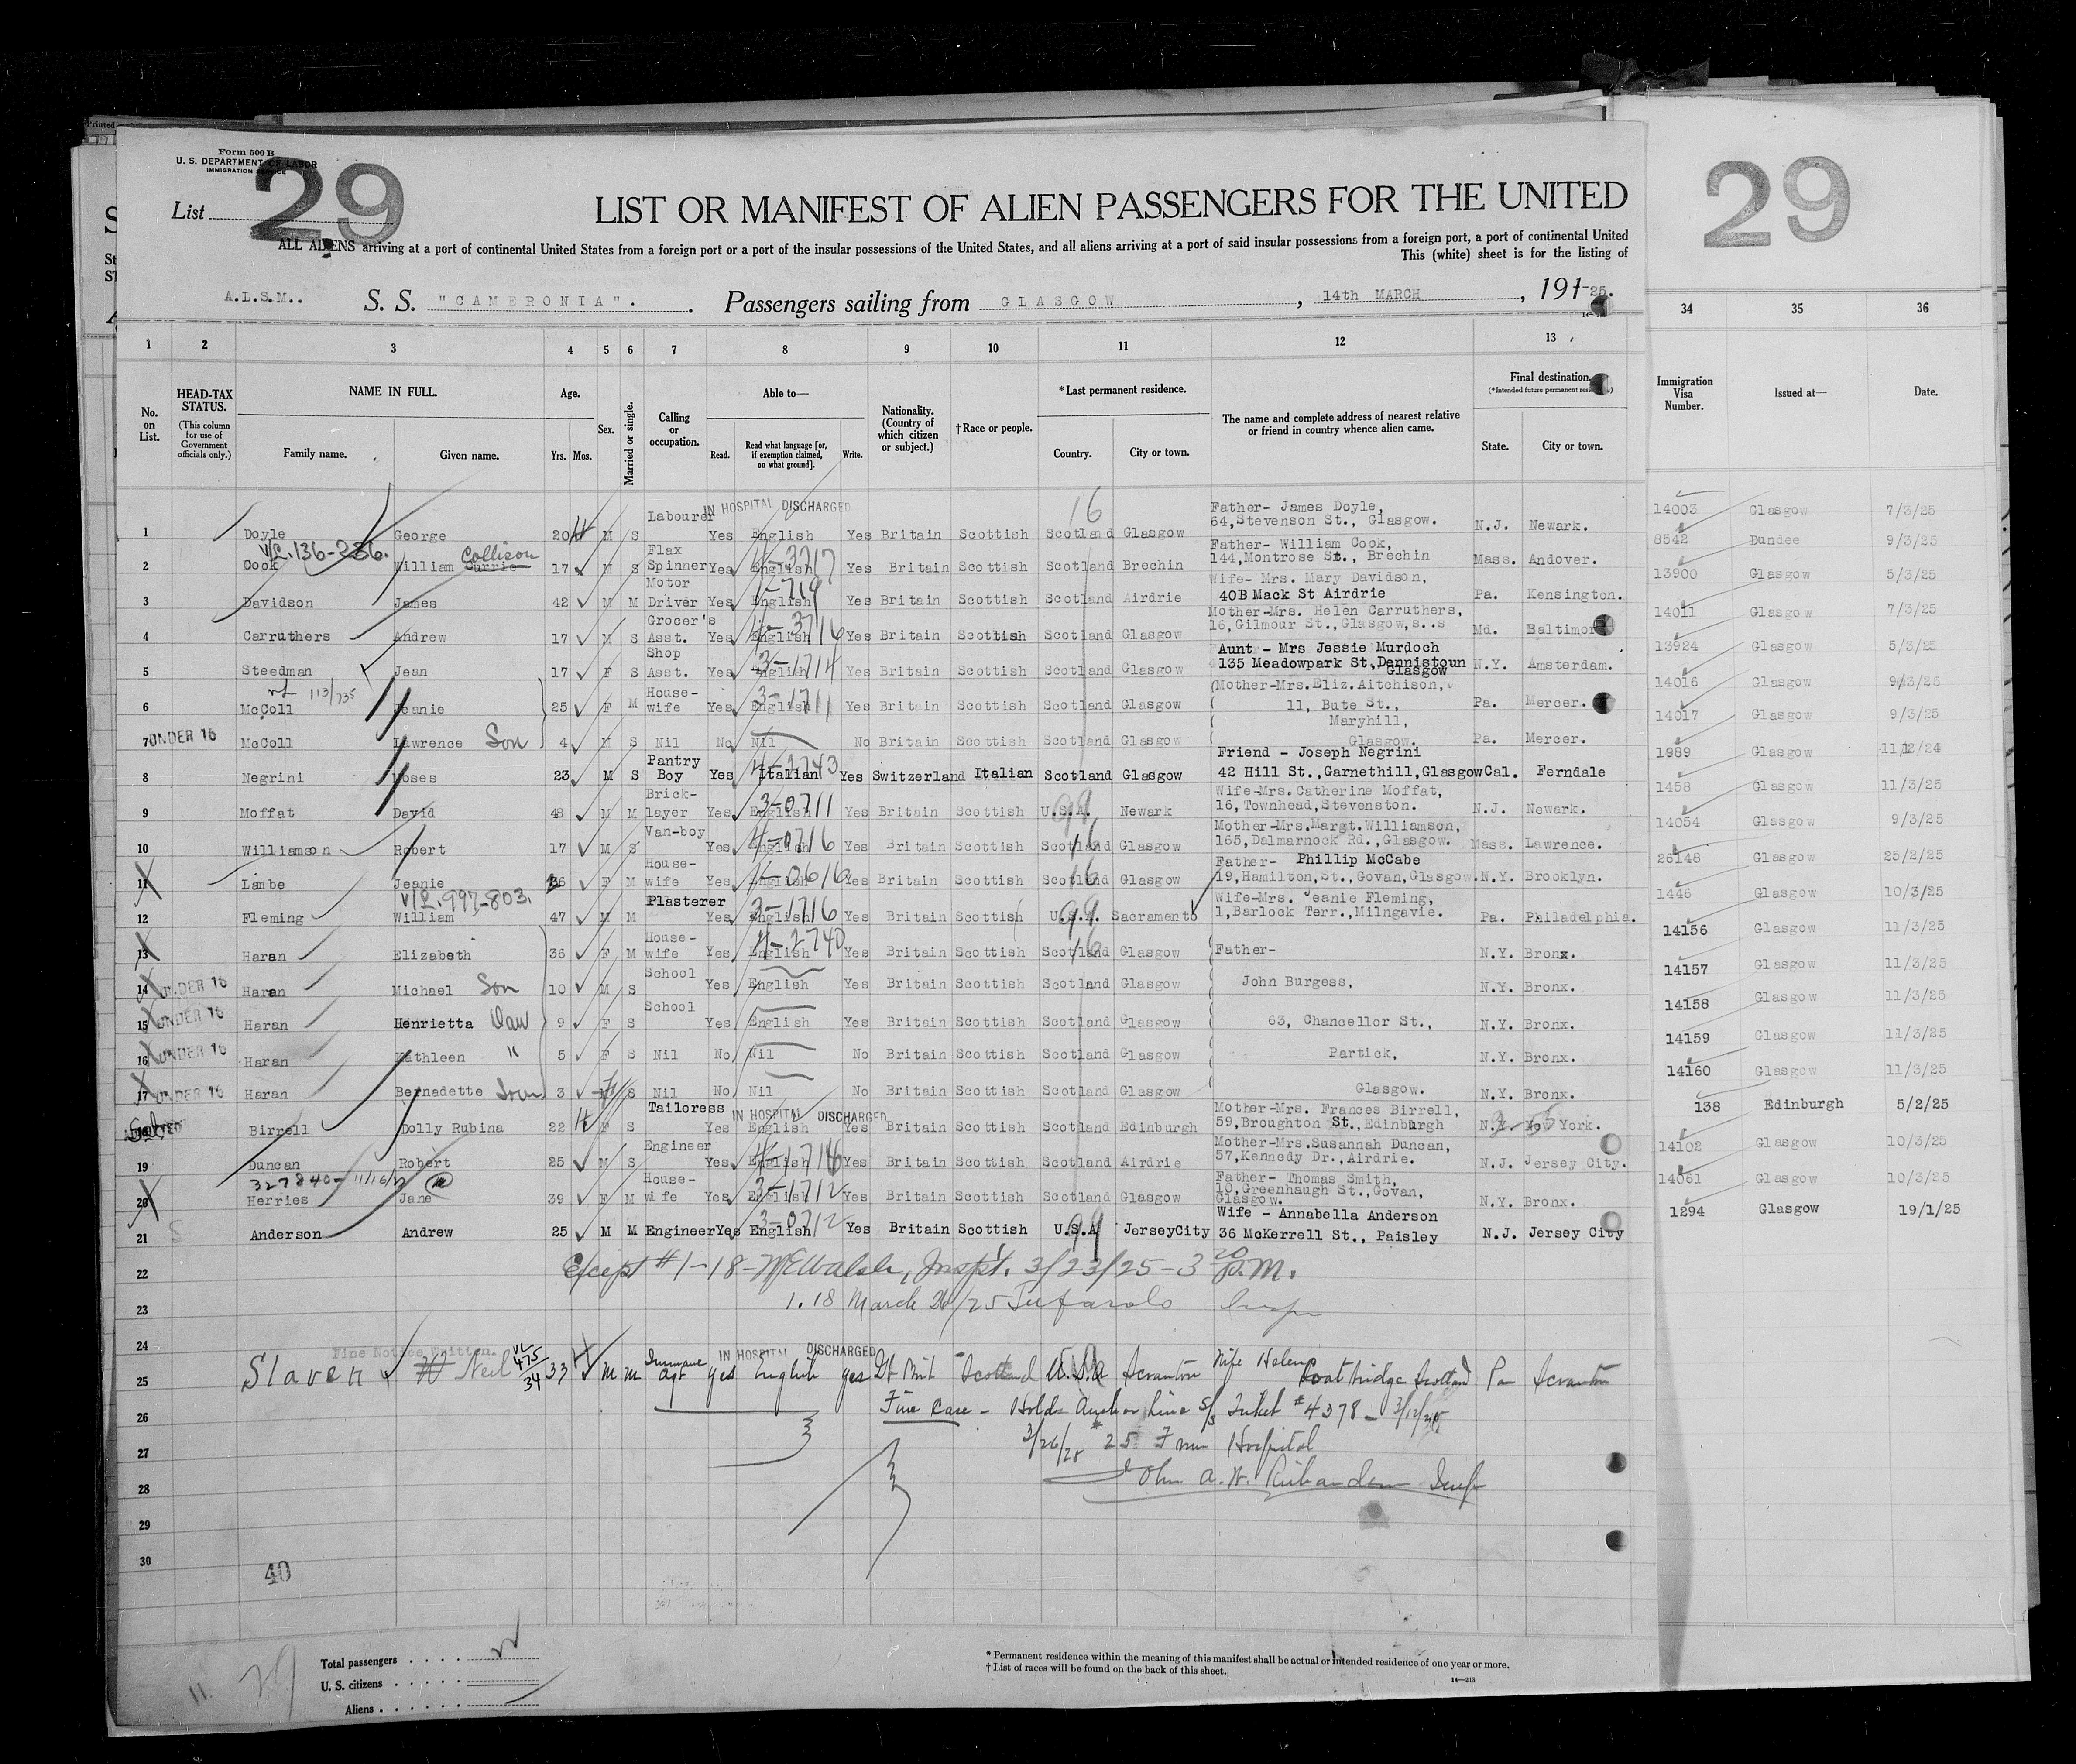 Form 500 B
U. S. DEPARTMENT OF LABOR
IMMIGRATION SERVICE
29
29
List
LIST OR MANIFEST OF ALIEN PASSENGERS FOR THE UNITED
ALL ALIENS arriving at a port of continental United States from a foreign port or a port of the insular possessions of the United States, and all aliens arriving at a port of said insular possessions from a foreign port, a port of continental United
This (white) sheet is for the listing of
A.L.S.M.. S. S. "CAMERONIA". Passengers sailing from GLASGOW, 14th MARCH, 191-25.
1 2 3 4 5 6 7 8 9 10 11 12 13 34 35 36
No. on List. HEAD-TAX STATUS. (This column for use of Government officials only.) NAME IN FULL. Family name. Given name. Age. Yrs. Mos. Sex. Married or single. Calling or occupation. Able to— Read. Read what language [or, if exemption claimed, on what ground]. Write. Nationality. (Country of which citizen or subject.) † Race or people. *Last permanent residence. Country. City or town. The name and complete address of nearest relative or friend in country whence alien came. Final destination. (*Intended future permanent State. City or town. Immigration Visa Number. Issued at— Date.
IN HOSPITAL DISCHARGED 16
1 Doyle George 20 M S Labourer Yes English Yes Britain Scottish Scotland Glasgow Father- James Doyle, 64,Stevenson St., Glasgow. N.J. Newark. 14003 Glasgow 7/3/25
V/L.136-236. Collison
2 Cook William Currie 17 M S Flax Spinner Yes English 4-3717 Yes Britain Scottish Scotland Brechin Father- William Cook, 144,Montrose St., Brechin Mass. Andover. 8542 Dundee 9/3/25
3 Davidson James 42 M M Motor Driver Yes English 1-719 Yes Britain Scottish Scotland Airdrie Wife- Mrs. Mary Davidson, 40B Mack St Airdrie Pa. Kensington. 13900 Glasgow 5/3/25
4 Carruthers Andrew 17 M S Grocer's Asst. Yes English 4-3716 Yes Britain Scottish Scotland Glasgow Mother-Mrs. Helen Carruthers, 16,Gilmour St.,Glasgow,s..s Md. Baltimor 14011 Glasgow 7/3/25
5 Steedman Jean 17 F S Shop Asst. Yes English 3-1714 Yes Britain Scottish Scotland Glasgow Aunt - Mrs Jessie Murdoch 135 Meadowpark St,Dennistoun Glasgow N.Y. Amsterdam. 13924 Glasgow 5/3/25
113/735
6 McColl Jeanie 25 F M House-wife Yes English 3-1711 Yes Britain Scottish Scotland Glasgow (Mother-Mrs.Eliz.Aitchison, 11, Bute St., Pa. Mercer. 14016 Glasgow 9/3/25
7 UNDER 16 McColl Lawrence Son 4 M S Nil No Nil No Britain Scottish Scotland Glasgow Maryhill, Glasgow. Pa. Mercer. 14017 Glasgow 9/3/25
8 Negrini Moses 23 M S Pantry Boy Yes Italian 4-2743 Yes Switzerland Italian Scotland Glasgow Friend - Joseph Negrini 42 Hill St.,Garnethill,Glasgow Cal. Ferndale 1989 Glasgow 11/12/24
9 Moffat David 48 M M Brick-layer Yes English 3-0711 Yes Britain Scottish U.S.A. 99 Newark Wife-Mrs.Catherine Moffat, 16,Townhead,Stevenston. N.J. Newark. 1458 Glasgow 11/3/25
10 Williamson Robert 17 M S Van-boy Yes English 4-0716 Yes Britain Scottish Scotland 16 Glasgow Mother-Mrs.Margt.Williamson, 165,Dalmarnock Rd.,Glasgow. Mass. Lawrence. 14054 Glasgow 9/3/25
11 Limbe Jeanie 26 F M House-wife Yes English 4-0616 Yes Britain Scottish Scotland 16 Glasgow Father- Phillip McCabe 19,Hamilton,St.,Govan,Glasgow. N.Y. Brooklyn. 26148 Glasgow 25/2/25
V/L.997-803.
12 Fleming William 47 M M Plasterer Yes English 3-1716 Yes Britain Scottish U.S.A. 99 Sacramento Wife-Mrs. Jeanie Fleming, 1,Barlock Terr.,Milngavie. Pa. Philadelphia. 1446 Glasgow 10/3/25
13 Haran Elizabeth 36 F M House-wife Yes English 4-2740 Yes Britain Scottish Scotland 16 Glasgow Father- N.Y. Bronx. 14156 Glasgow 11/3/25
14 UNDER 16 Haran Michael Son 10 M S School Yes English Yes Britain Scottish Scotland Glasgow John Burgess, N.Y. Bronx. 14157 Glasgow 11/3/25
15 UNDER 16 Haran Henrietta Dau 9 F S School Yes English Yes Britain Scottish Scotland Glasgow 63, Chancellor St., N.Y. Bronx. 14158 Glasgow 11/3/25
16 UNDER 16 Haran Kathleen " 5 F S Nil No Nil No Britain Scottish Scotland Glasgow Partick, N.Y. Bronx. 14159 Glasgow 11/3/25
17 UNDER 16 Haran Bernadette 3 F S Nil No Nil No Britain Scottish Scotland Glasgow Glasgow. N.Y. Bronx. 14160 Glasgow 11/3/25
IN HOSPITAL DISCHARGED
ADMITTED Birrell Dolly Rubina 22 F S Tailoress Yes English Yes Britain Scottish Scotland Edinburgh Mother-Mrs. Frances Birrell, 59,Broughton St.,Edinburgh N.Y. New York. 138 Edinburgh 5/2/25
19 Duncan Robert 25 M S Engineer Yes English 4-1716 Yes Britain Scottish Scotland Airdrie Mother-Mrs.Susannah Duncan, 57,Kennedy Dr.,Airdrie. N.J. Jersey City. 14102 Glasgow 10/3/25
327840-11/16/
20 Herries Jane 39 F M House-wife Yes English 3-1712 Yes Britain Scottish Scotland Glasgow Father- Thomas Smith, 10,Greenhaugh St.,Govan, Glasgow. N.Y. Bronx. 14061 Glasgow 10/3/25
21 Anderson Andrew 25 M M Engineer Yes English 3-0712 Yes Britain Scottish U.S.A 99 JerseyCity Wife - Annabella Anderson 36 McKerrell St., Paisley N.J. Jersey City 1294 Glasgow 19/1/25
22 Except #1-18- Inspt. 3/23/25-3 20 P.M.
23 1.18 March 26/25 Insp
24 Fine Notice Written. IN HOSPITAL DISCHARGED
25 Slaven Neil VL 475/34 33 M M Insurance Agt yes English yes Gt Brit Scotland U.S.A Scranton Wife Helen Coatbridge Scotland Pa Scranton
26 Fine Case - Holds Anchor Line S/S Ticket #4378 - 3/12/25
27 3/26/25 #25 From Hospital
28 John A. W. Richardson Insp
29
30
40
Total passengers
U. S. citizens
Aliens
11. 29
* Permanent residence within the meaning of this manifest shall be actual or intended residence of one year or more.
† List of races will be found on the back of this sheet.
14—213